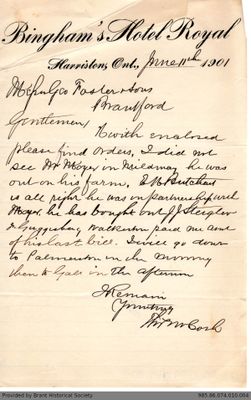 Bingham's Hotel Royal
Harriston, Ont., June 11th 1901
Messrs Geo Foster & Sons
Brantford
Gentlemen
Herewith enclosed
Please find orders. I did not
see Mr Moyer in Mildmay he was
out on his farm, E. H. Butchart
is all right he was in partnership with
Moyer. he has bought out J.J. Steigler
Walkerton paid me
of his last bill. I will go down
to Palmerston in the morning
then to Galt in the afternoon
I Remain
Yours truly
Provided by Brant Historical Society
985.86.074.010.064